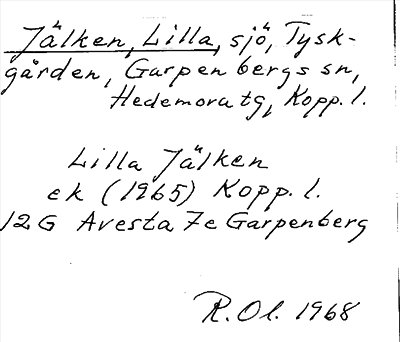 Jälken, Lilla, sjö, Tysk-
gården, Garpenbergs sn,
Hedemora tg, Kopp. l.
Lilla Jälken
ek (1965) Kopp. l.
12 G Avesta 7e Garpenberg
R. Ol. 1968